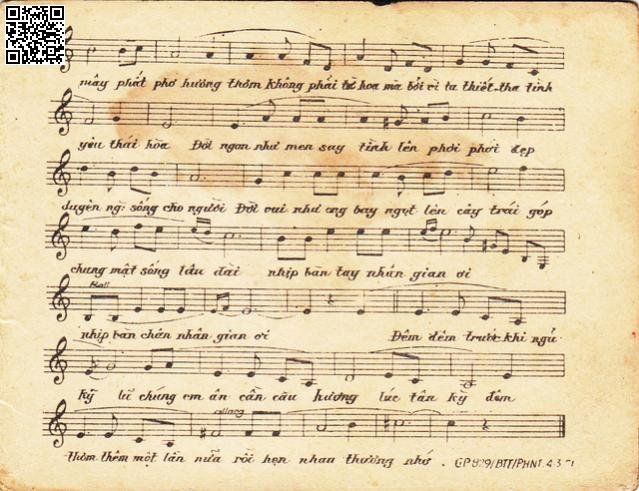 mây phất phơ hương thơm không phải từ hoa mà bởi vì ta thiết tha tình
yêu thái hòa Đời ngon như men say tình lên phơi phới đẹp
duyên người sống cho người Đời vui như ong bay ngọt lên cây trái góp
chung mật sống lâu dài nhịp bàn tay nhân gian ơi
Rall
nhịp bàn chân nhân gian ơi Đêm đêm trước khi ngủ
kỹ lũ chúng em ân cần câu hương lúc tân kỳ đôm
rallang
thòm thêm một lần nữa rồi hẹn nhau thương nhớ .